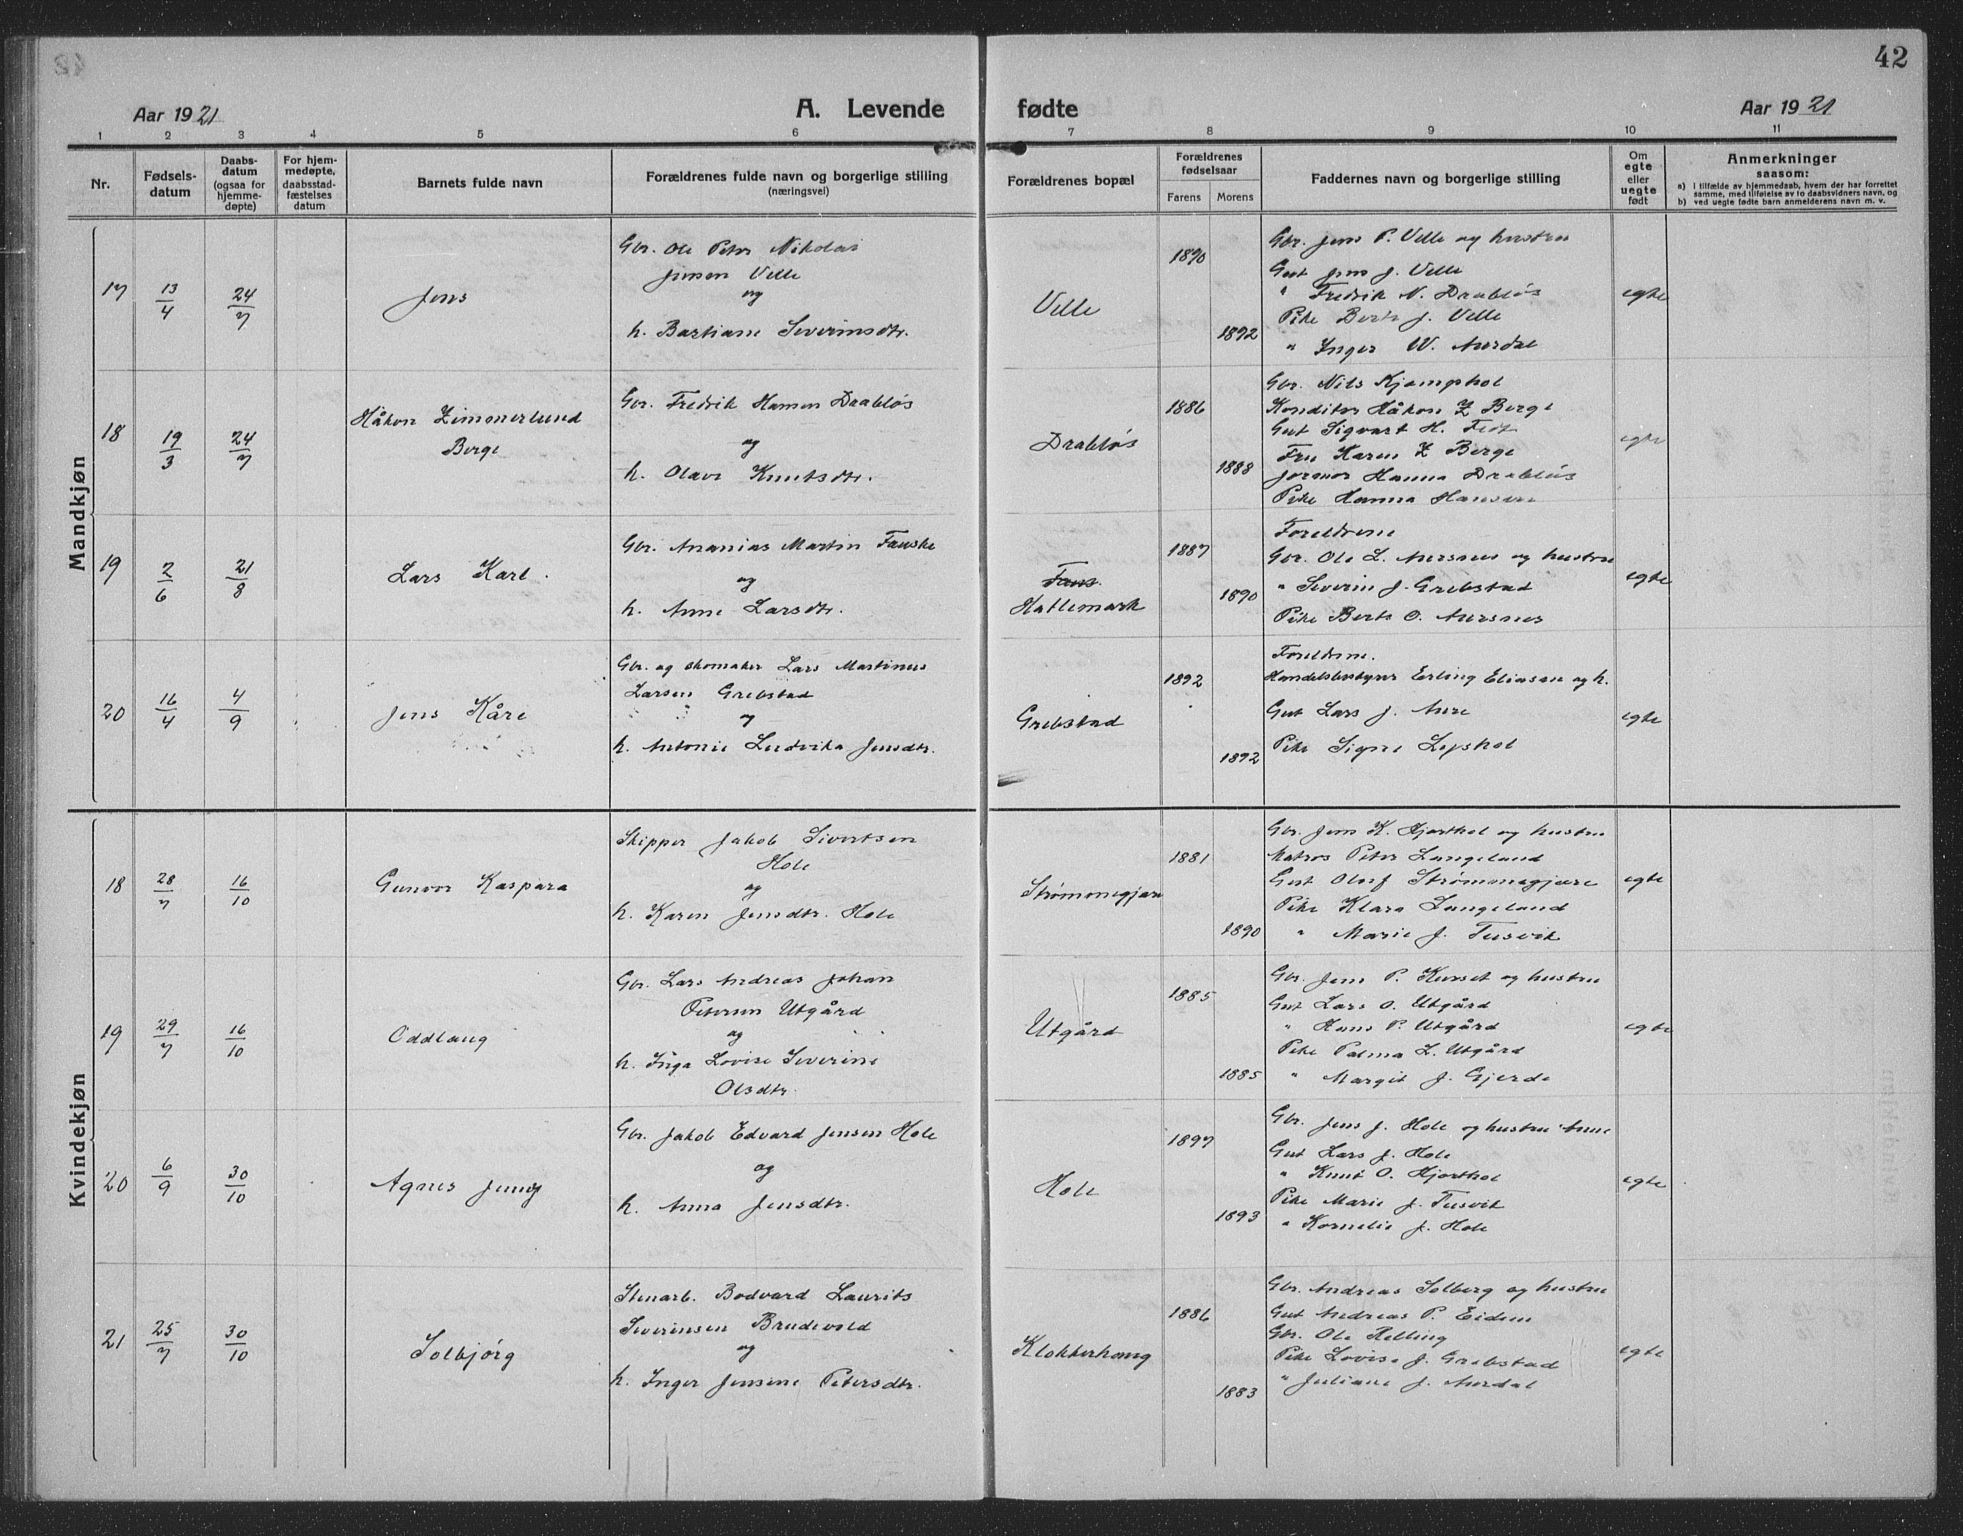 42
Aar 1921
A. Levende fødte
Aar 1921
1 2 3 4 5 6 7 8 9 10 11
Nr.
Fødselsdatum
Daabsdatum (ogsaa for hjemmedøpte)
For hjemmedøpte, daabsstadfæstelses datum
Barnets fulde navn
Forældrenes fulde navn og borgerlige stilling
(næringsvei)
Forældrenes bopæl
Forældrenes fødselsaar
Farens Morens
Faddernes navn og borgerlige stilling
Om egte eller uegte født
Anmerkninger
saasom:
a) i tilfælde av hjemmedaab, hvem der har forrettet
samme, med tilføielse av to daabsvidners navn, og
b) ved uegte fødte barn anmelderens navn m. v.
Mandkjøn
17 13/4 24/7 Jens
Gbr. Ole Peter Nikolai
Jensen Velle
og
h. Bastiane Severinsdtr.
Velle
1890
1892
Gbr. Jens P. Velle og hustru
Gut Jens J. Velle
" Fredrik N. Drabløs
Pike Berte J. Velle
" Inger W. Aurdal
egte
18 19/3 24/7 Håkon Zimmerlund
Berge
Gbr. Fredrik Hansen Drabløs
og
h. Olave Knutsdtr.
Drabløs
1886
1888
Gbr. Nils Kjemphol
Konditor Håkon Z Berge
Gut Sigvart H. Fedt
Fru Karen Z Berge
Jormor Hanna Drabløs
Pike Hanna Hansen
egte
19 2/6 21/8 Lars Karl.
Gbr. Ananias Martin Fauske
og
h. Anne Larsdtr.
Faus.
Hatlemark
1887
1890
Foreldrene
Gbr. Ole L. Aursnes og hustru
" Severin J. Grebstad
Pike Berte O. Aursnes
egte
20 16/4 4/9 Jens Kåre
Gbr. og skomaker Lars Martinus
Larsen Grebstad
og
h. Antonie Ludvika Jensdtr.
Grebstad
1892
1892
Foreldrene.
Handelsbestyrer Erling Eliasen og h.
Gut Lars J. Aure
Pike Signe Lepshol
egte
Kvindekjøn
18 28/7 16/10 Gunvor Kaspara
Skipper Jakob Sivertsen
Hole
og
h. Karen Jensdtr. Hole
Strømmegjære
1881
1890
Gbr. Jens K. Hjorthol og hustru
Matros Peter Langeland
Gut Oluf Strømmegjære
Pike Klara Langeland
" Marie J. Tusvik
egte
19 29/7 16/10 Oddlaug
Gbr. Lars Andreas Johan
Petersen Utgård
og
h. Inga Lovise Severine
Olsdtr.
Utgård
1885
1885
Gbr. Jens P. Kurset og hustru
Gut Lars O. Utgård
" Hans P. Utgård
Pike Palma L. Utgård
" Margit J. Gjerde
egte
20 6/9 30/10 Agnes Jenny
Gbr. Jakob Edvard Jensen Hole
og
h. Anna Jensdtr.
Hole
1897
1893
Gbr. Jens J. Hole og hustru Anne
Gut Lars J. Hole
" Knut O. Hjorthol
Pike Marie J. Tusvik
" Kornelie J. Hole
egte
21 25/7 30/10 Solbjørg
Stenarb. Bodvard Laurits
Severinsen Brudevold
og
h. Inger Jensine Petersdtr.
Klokkerhaug
1886
1883
Gbr. Andreas Solberg og hustru
Gut Andreas P. Eidem
Gbr. Ole Relling
Pike Lovise J. Grebstad
" Juliane J. Aurdal
egte